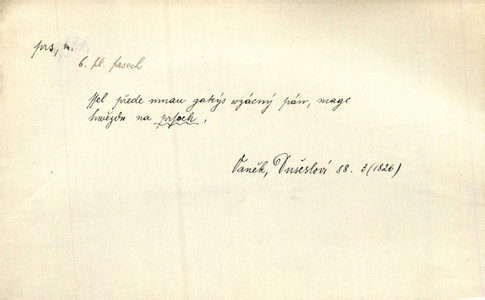 prs, m.
6. pl. prsech
Ssel přede mnau gakýs wzácný pán, mage
hwězdu na prsech,
Vaněk, Dušesloví 88. 3 (1826)